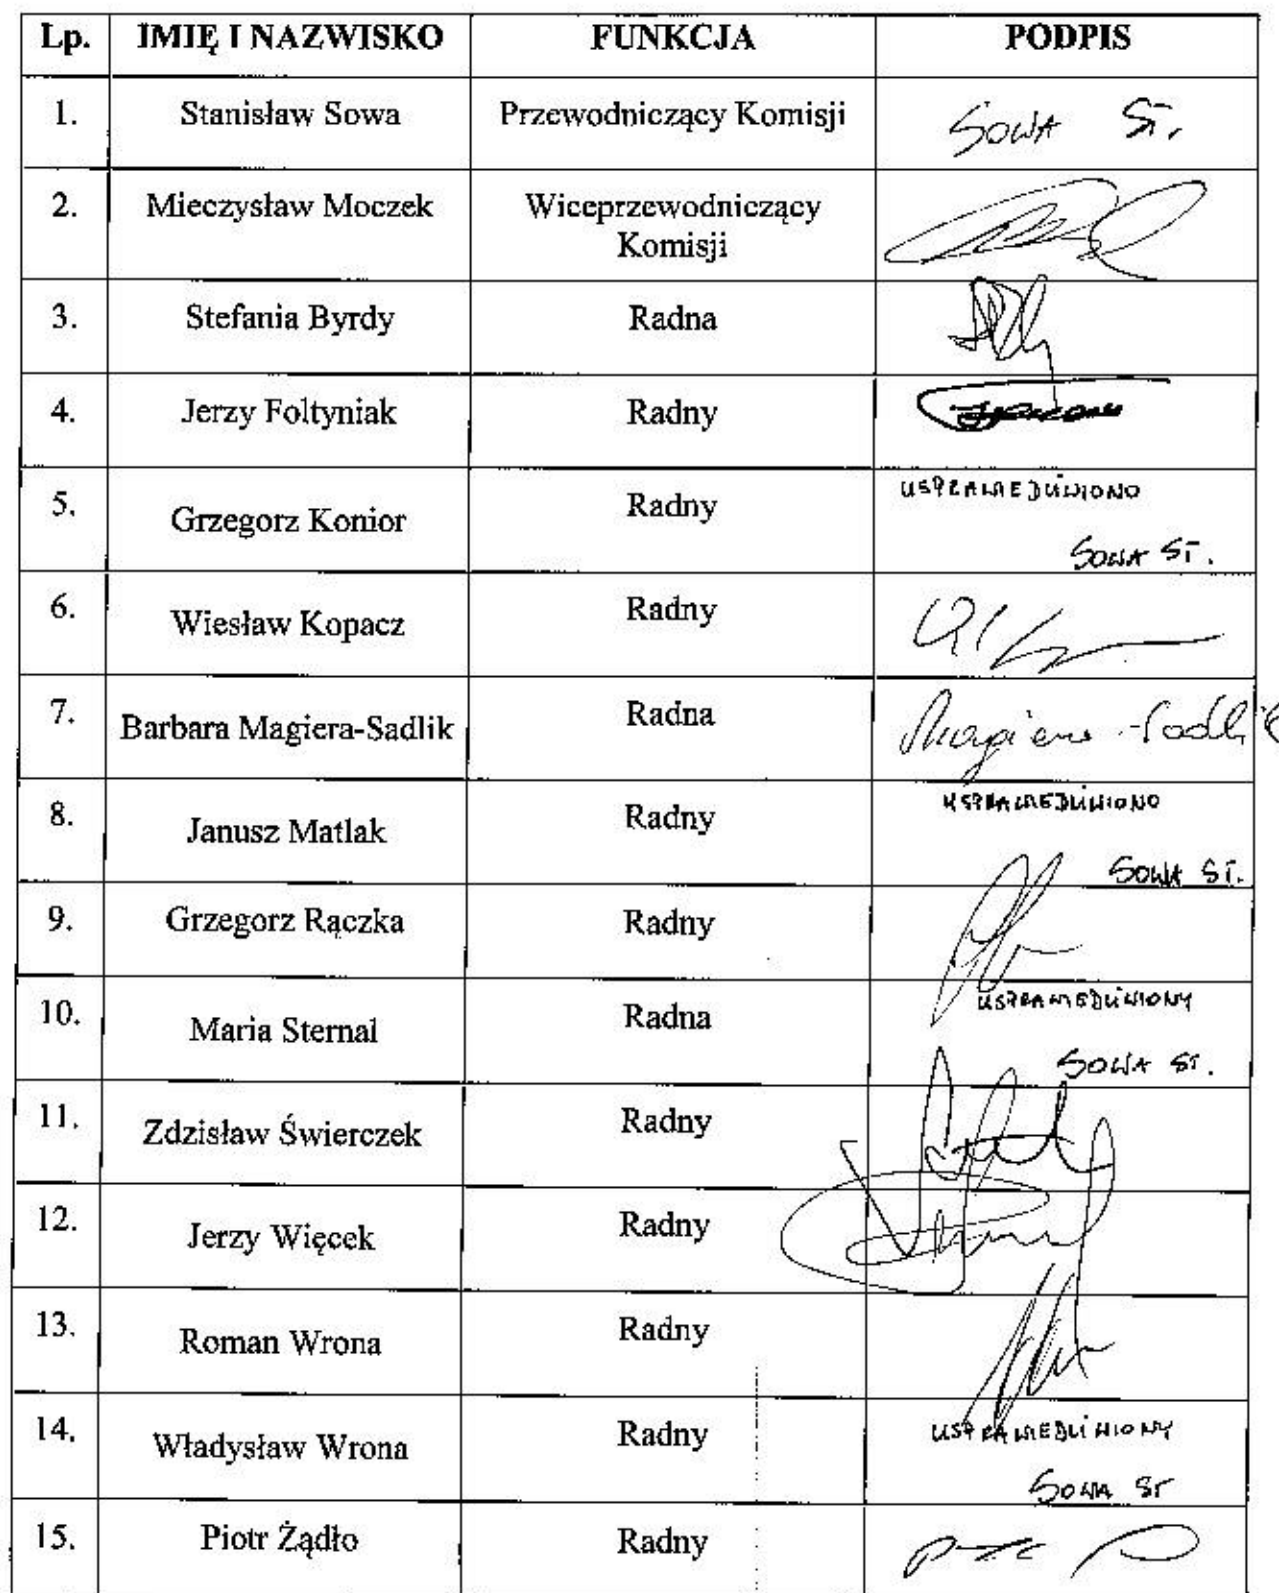 Lp. IMIĘ I NAZWISKO FUNKCJA PODPIS
1. Stanisław Sowa Przewodniczący Komisji SOWA ST.
2. Mieczysław Moczek Wiceprzewodniczący
Komisji
3. Stefania Byrdy Radna
4. Jerzy Foltyniak Radny
5. Grzegorz Konior Radny USPRAWIEDLIWIONO
SOWA ST.
6. Wiesław Kopacz Radny
7. Barbara Magiera-Sadlik Radna Magiera-Sadlik
8. Janusz Matlak Radny USPRAWIEDLIWIONO
SOWA ST.
9. Grzegorz Rączka Radny
10. Maria Sternal Radna USPRAWIEDLIWIONY
SOWA ST.
11. Zdzisław Świerczek Radny
12. Jerzy Więcek Radny
13. Roman Wrona Radny
14. Władysław Wrona Radny USPRAWIEDLIWIONY
SOWA ST
15. Piotr Żądło Radny